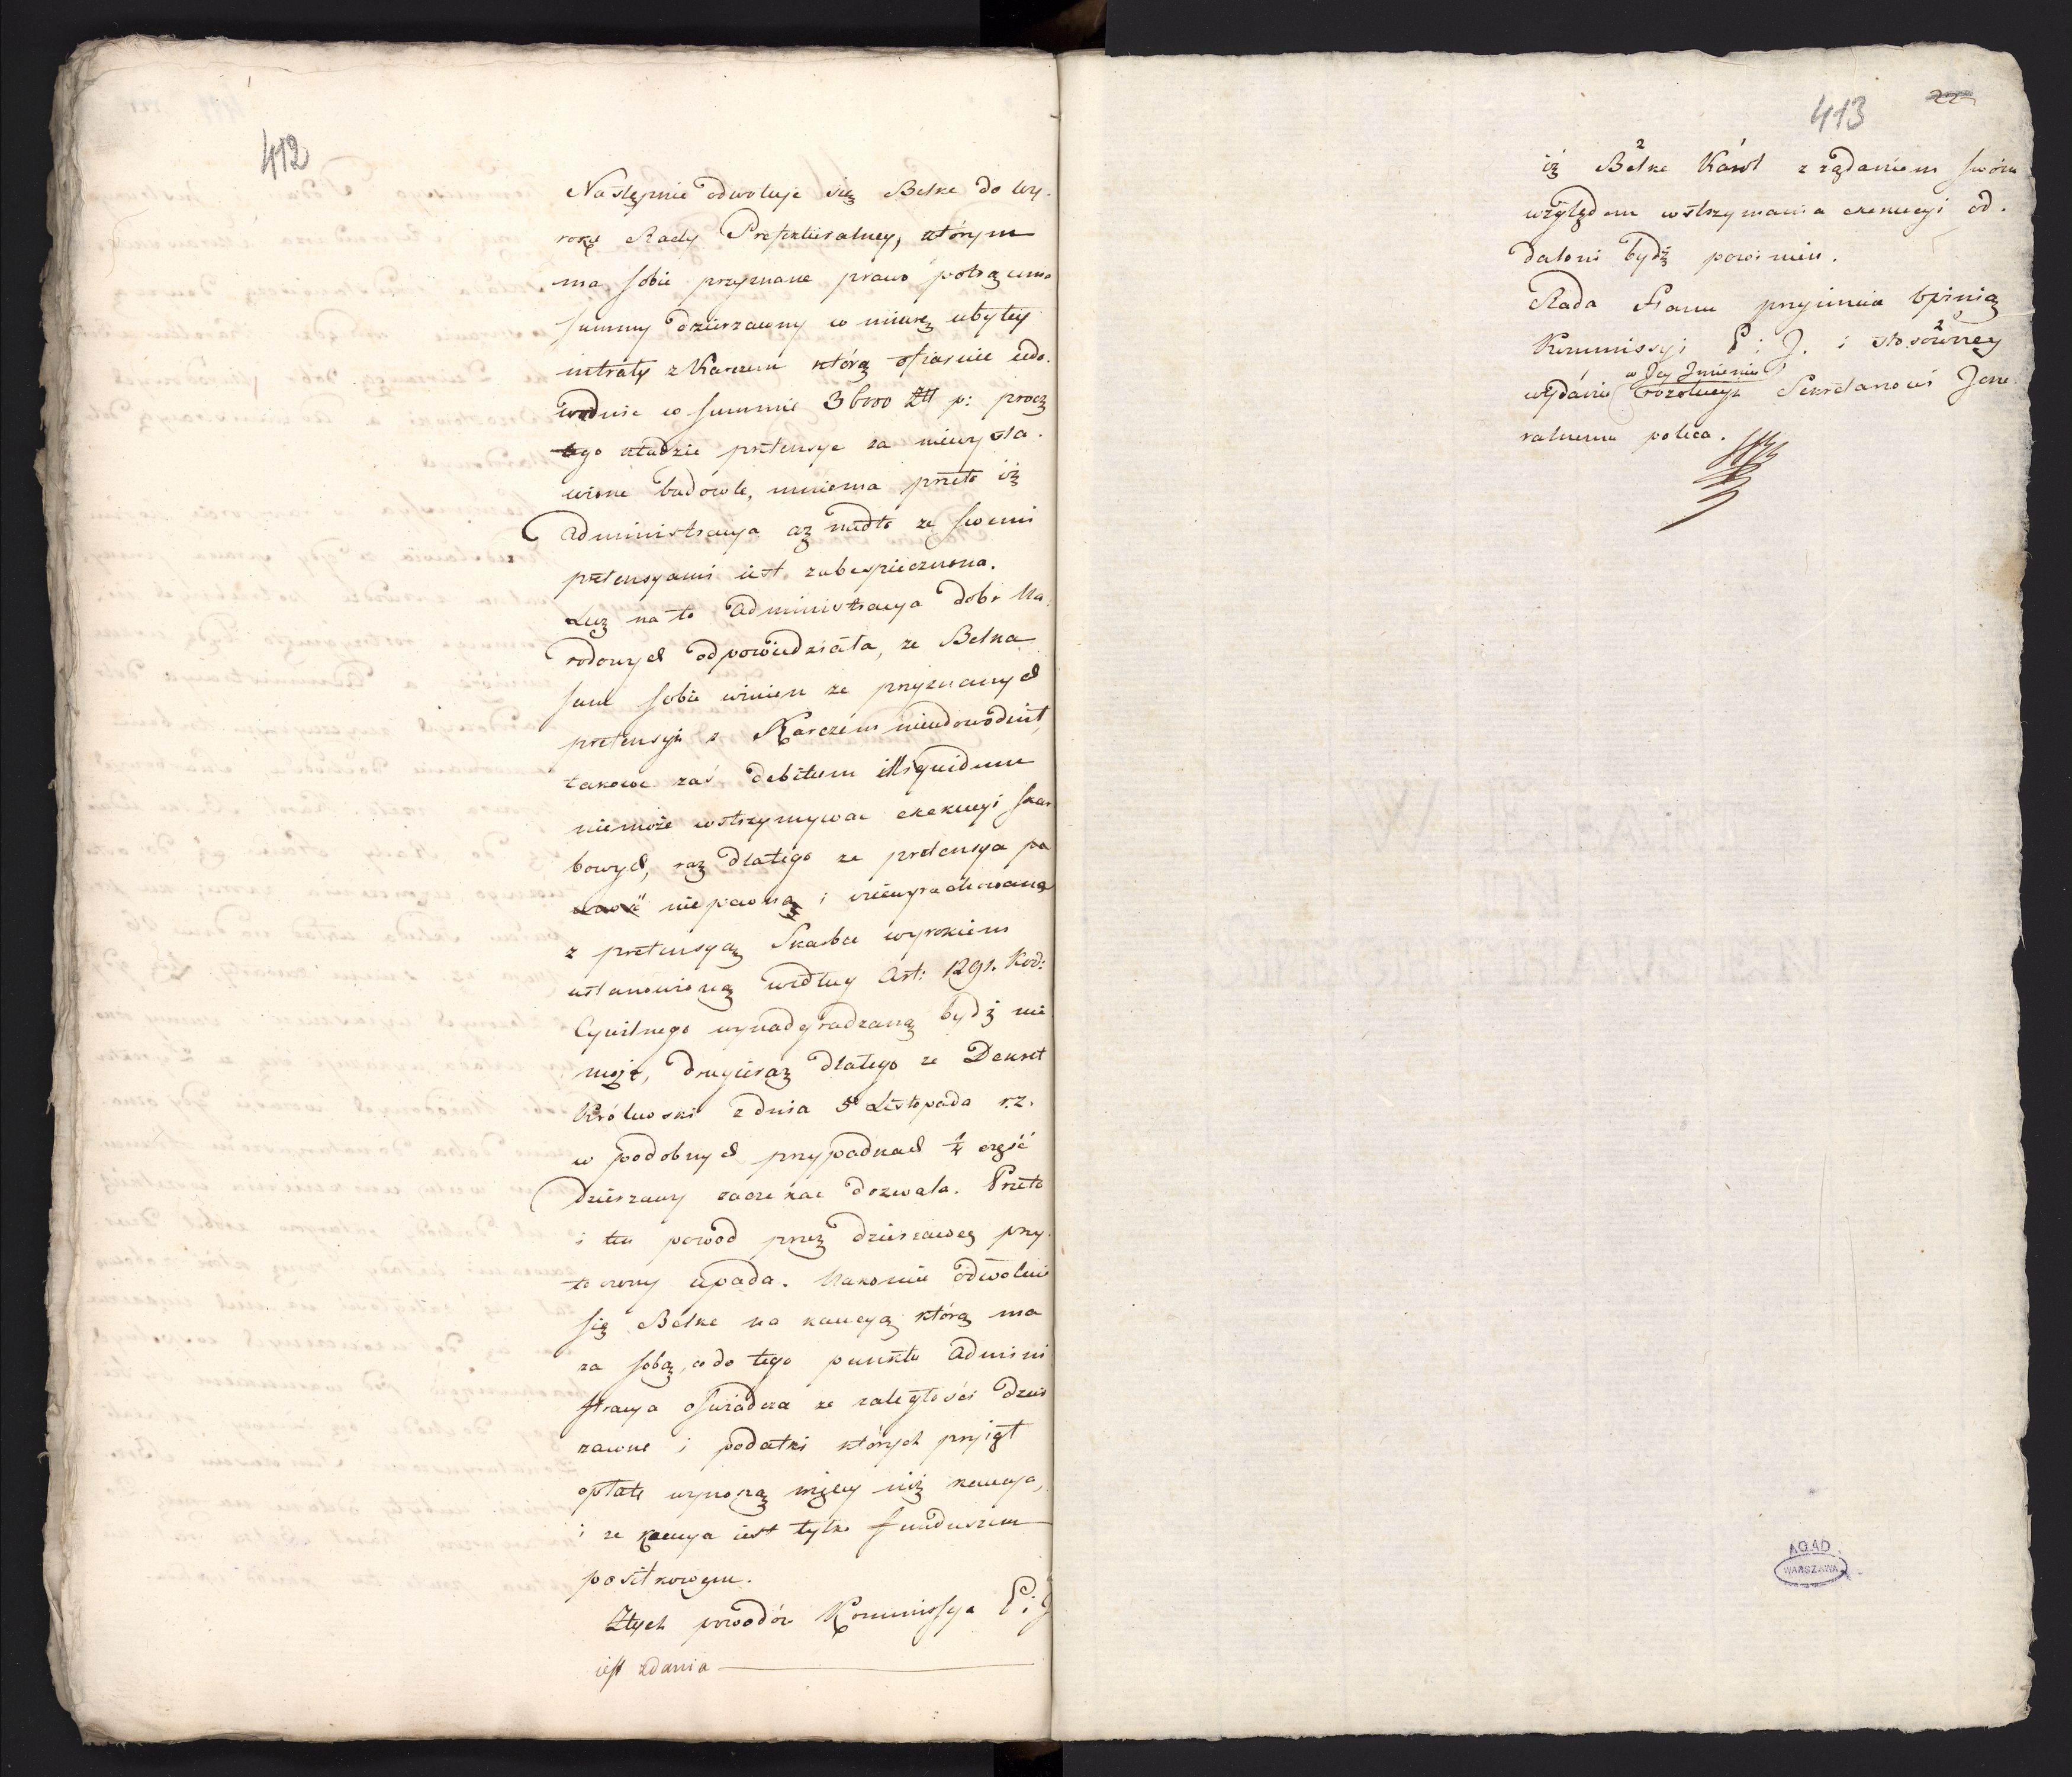 412
Następnie odwołuje się Belke do wy-
roku Rady Prefekturalney, którym
ma sobie przyznane prawo potrącenia
summy dzierzawney w miarę ubyłey
intraty z Karczem którą ofiaruie udo-
wodnić w summie 36000 Złł p: procz
tego kładzie pretensye za niewysta-
wione budowle, mniema przeto iż
administracya aż nadto ze swemi
pretensyami iest zabespieczona.
Lecz na to administracya dobr Na-
rodowych odpowiedziała, ze Belka
sam sobie winien ze przyznanych
pretensyi z Karczem nieudowodnił,
takowe zaś debitum illiquidum
niemoże wstrzymywac exekucyi skar-
bowych, raz dlatego ze pretensya
niepewną i niewyrachowaną
z pretensyą Skarbu wyrokiem
ustanowioną według Art: 1291. Kod:
Cywilnego wynadgradzaną bydź nie
może, drugieraz dlatego ze Dekret
Królewski z dnia 5 Listopada r.z.
w podobnych przypadkach ¼ część
Dzierzawy zaczekac dozwala. Przeto
i ten powod przez dzierzawcę przy-
toczony upada. Nakoniec odwołuie
się Belke na kaucyą którą ma
za sobą, co do tego punktu Admini
stracya oświadcza ze zaległości dzier
zawne i podatki których przyiął
opłatę wynoszą więcey niż kaucya,
i ze kaucya iest tylko funduszem
posiłkowym.
Z tych powodów Kommissya P: i J
iest zdania
413 22
iż Belke Karol z żądaniem swoim
względem wstrzymania exekucyi od-
dalony bydź powinien.
Rada Stanu przyimuie Opinią
Kommissyi P: i J. i stosowney
w Jey Jmieniu
wydanie rezolucyi Sekretarzowi Jene-
ralnemu poleca.
AGAD
WARSZAWA